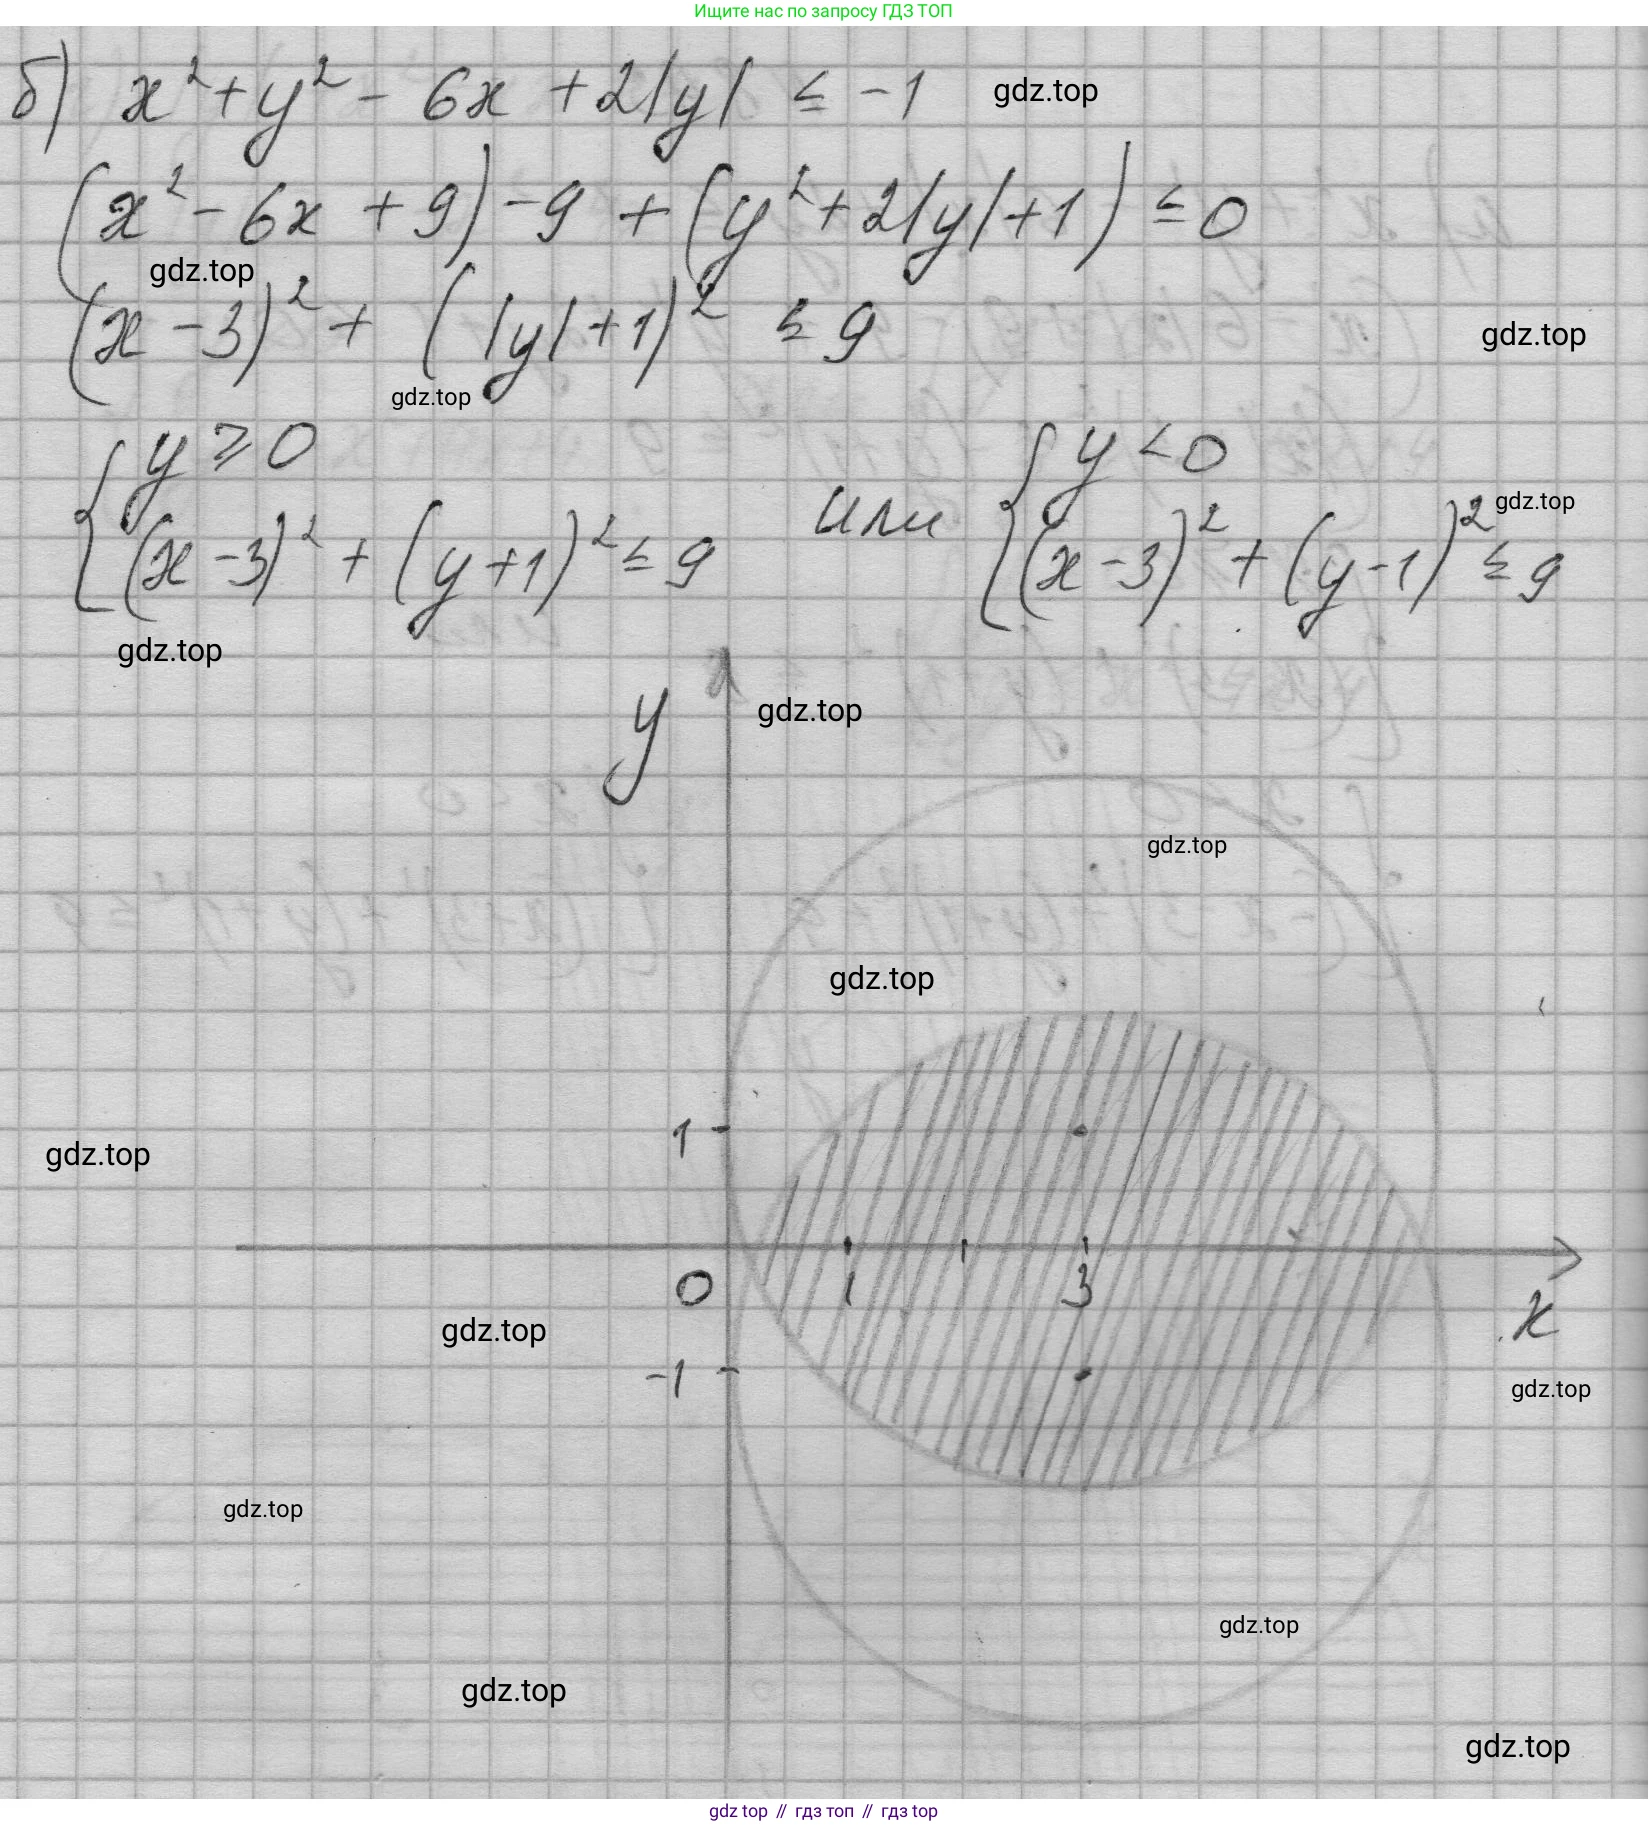 Ищите нас по запросу ГДЗ ТОП
б) x² + y² - 6x + 2|y| ≤ -1 gdz.top
(x² - 6x + 9) - 9 + (y² + 2|y| + 1) ≤ 0
gdz.top
(x - 3)² + (|y| + 1)² ≤ 9 gdz.top
gdz.top
{ y ≥ 0 или { y < 0 gdz.top
(x - 3)² + (y + 1)² ≤ 9 (x - 3)² + (y - 1)² ≤ 9
gdz.top
y gdz.top
gdz.top
gdz.top
1
gdz.top
0 1 3 x
gdz.top
-1 gdz.top
gdz.top
gdz.top
gdz.top
gdz.top
gdz top // гдз топ // гдз top